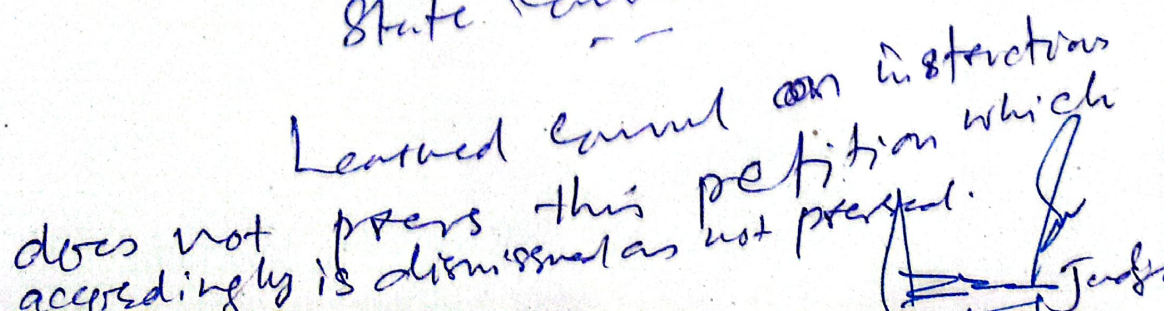 State
Learned counsel on instructions
does not press this petition which
accordingly is dismissed as not pressed.
Judge